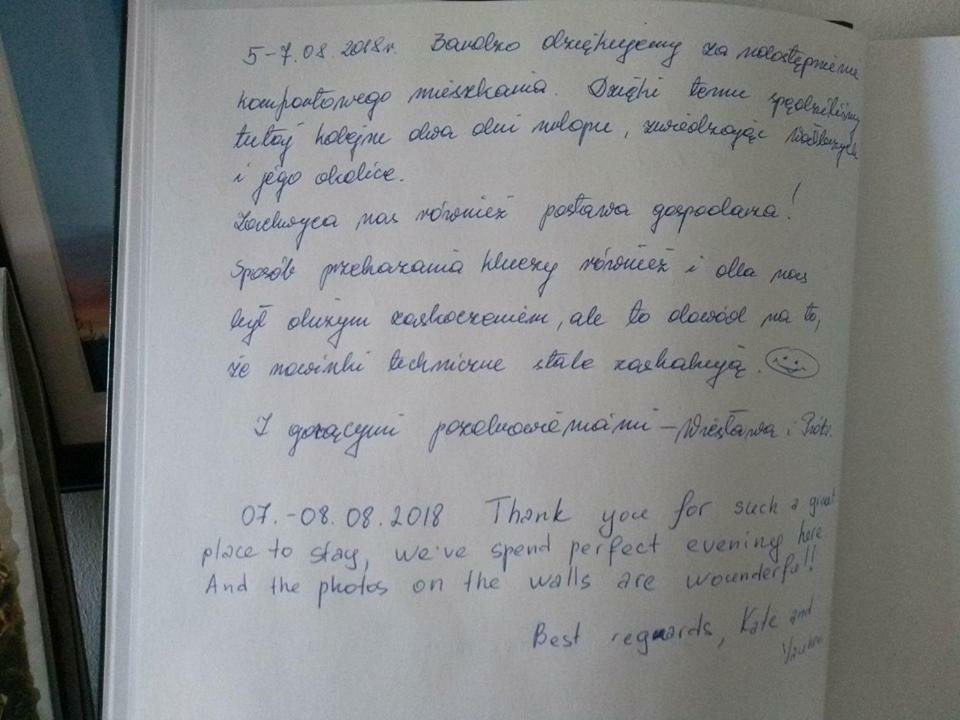 5-7.08.2018r. Bardzo dziękujemy za udostępnienie
komfortowego mieszkania. Dzięki temu spędziliśmy
tutaj kolejne dwa dni urlopu, zwiedzając
i jego okolice.
Zachwyca nas również postawa gospodarza!
Sposób przekazania kluczy również i dla nas
był dużym zaskoczeniem, ale to dowód na to,
że nowinki techniczne stale zaskakują.
Z gorącymi pozdrowieniami - Wiesława i
07.-08.08.2018 Thank you for such a great
place to stay, we've spend perfect evening here.
And the photos on the walls are wounderful!!
Best reguards, Kate and